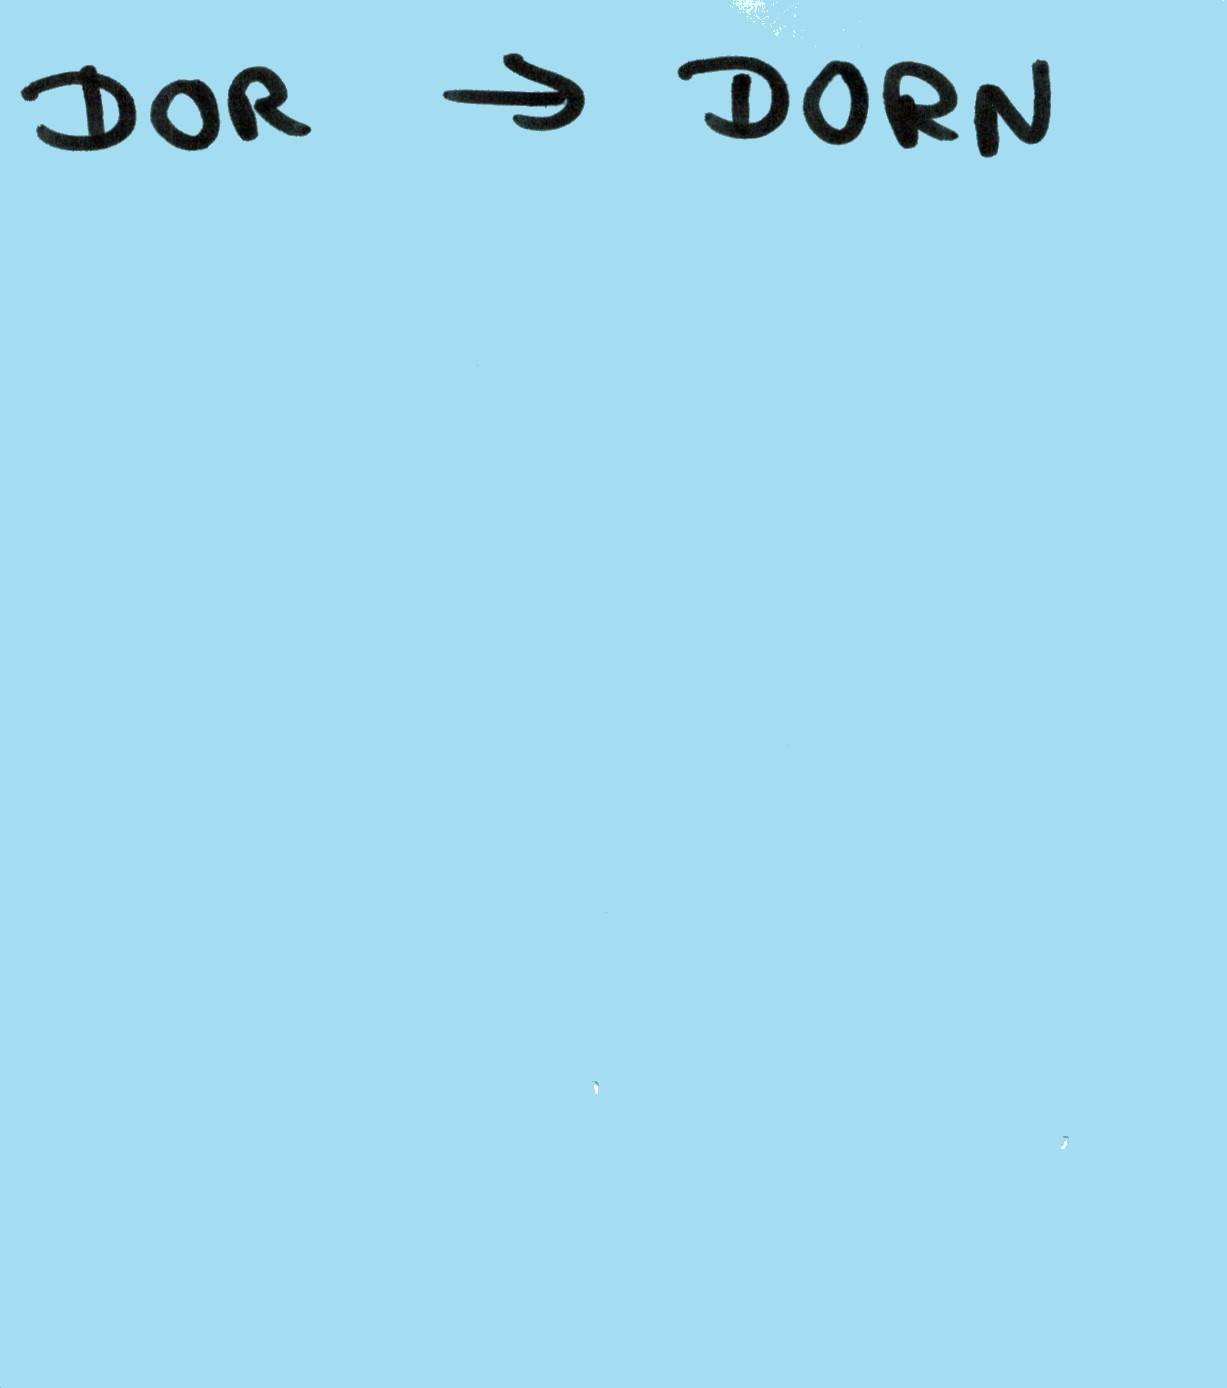 DOR → DORN